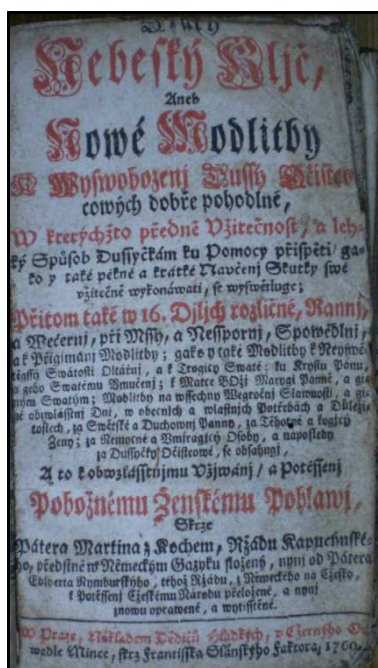 Zlatý
Nebeský Kljč,
Aneb
Nowé Modlitby
K Wyswobozenj Dussý Očistco-
cowých dobře pohodlné,
W kterýchžto předně Vžitečnost, a leh-
ký Spůsob Dussyčkám ku Pomocy přispěti/ ga-
ko y také pěkné a krátké Naučenj Skutky swé
vžitečně wykonáwati, se wyswětluge;
Přitom také w 16. Djljch rozličné, Rannj,
a Wečernj, při Mssy, a Nesspornj, Spowědlnj,
a k Přigjmánj Modlitby; gako y také Modlitby k Neyswě-
tějssý Swátosti Oltářnj, a k Trogicy Swaté; ku Krystu Pánu,
a geho Swatému Vmučenj; k Matce Božj Marygi Panně, a gi-
ným Swatým; Modlitby na wssechny Weyročnj Slawnosti, a gi-
né obzwlásstnj Dni, w obecnjch a wlastnjch Potřebách a Důleži-
tostech, za Swětské a Duchownj Panny, za Těhotné a rodjcý
Ženy; za Nemocné a Vmjragjcý Osoby, a naposledy
za Dussyčky Očistcowé, se obsahugj,
A to k obzwlásstnjmu Vžjwánj/ a Potěssenj
Pobožnému Ženskému Pohlawj,
Skrze
Pátera Martina z Kochem, Ržádu Kapucynské-
ho, předně w Německým Gazyku složený, nynj od Pátera
Edilberta Nymburského, téhož Ržádu, z Německého na Cžesko,
k Potěssenj Cžeskému Národu přeložené, a nynj
znowu oprawené, a wytisstěné.
W Praze, Nákladem Dědičů Hladkých, v Cžerného Or-
wedle Mince, skrz Frantisska Slánského Faktora, 1760.